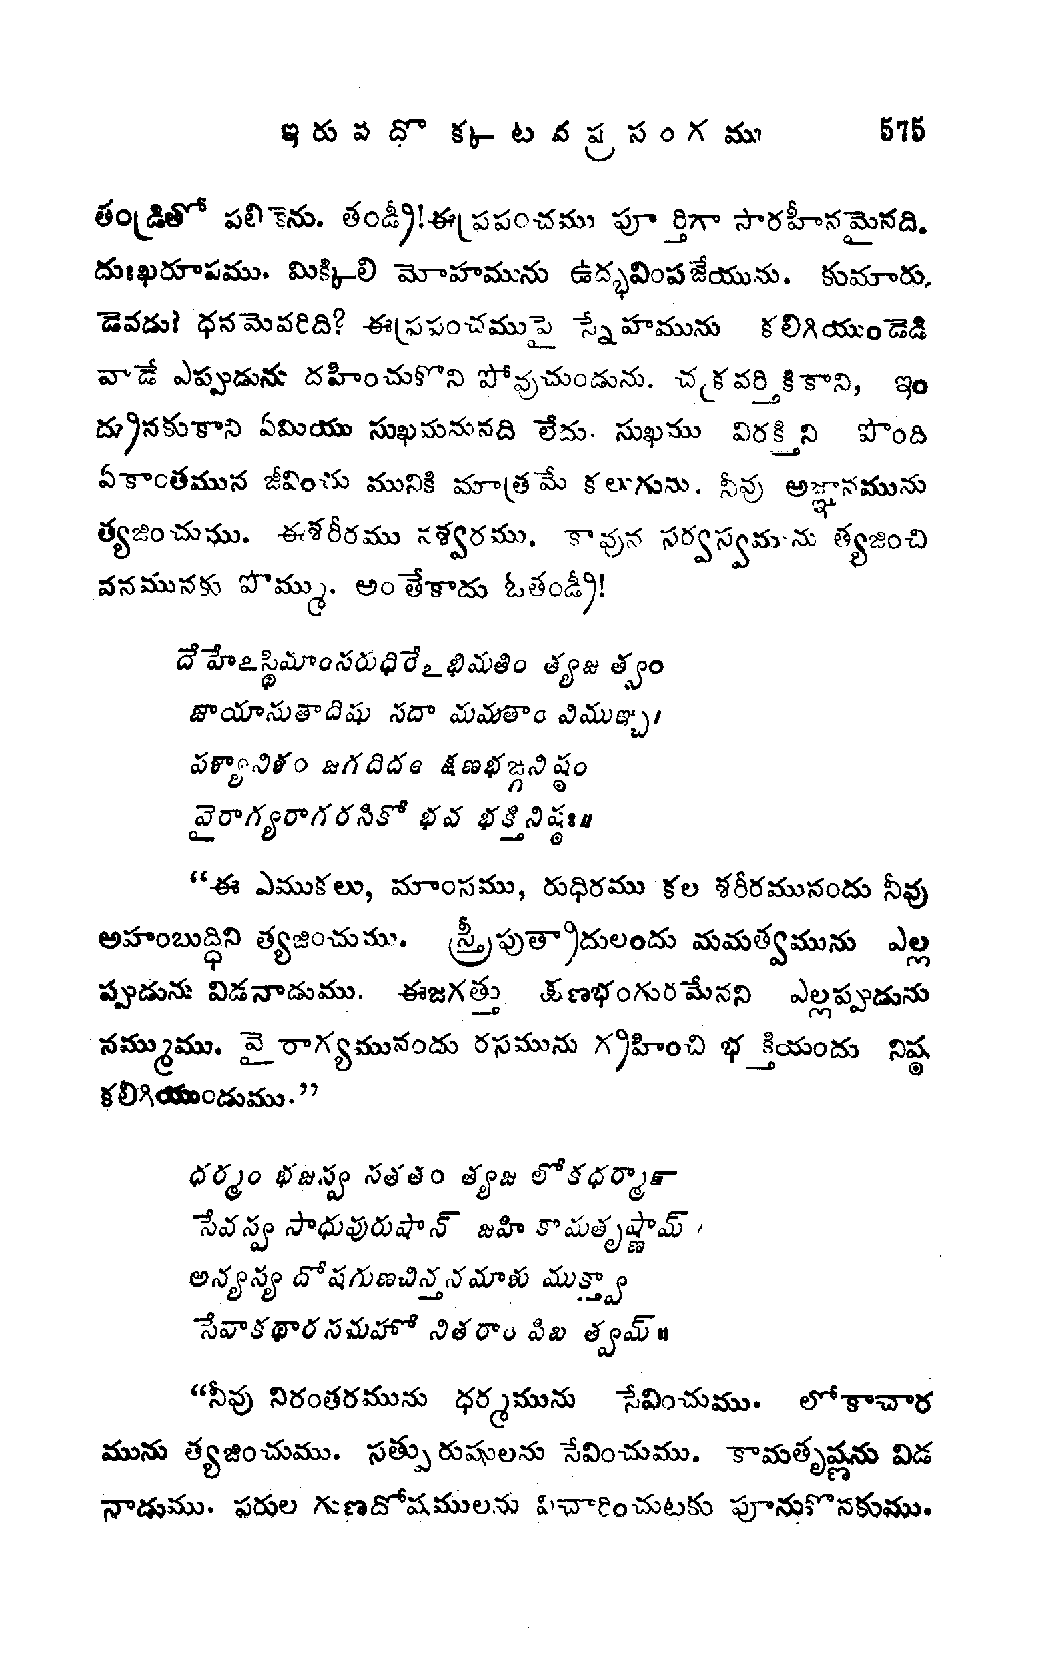 ఇరువదొక్కటవప్రసంగము 575
తండ్రితో పలికెను. తండ్రీ! ఈప్రపంచము పూర్తిగా సారహీనమైనది.
దుఃఖరూపము. మిక్కిలి మోహమును ఉద్భవింపజేయును. కుమారు,
డెవడు? ధనమెవరిది? ఈప్రపంచముపై స్నేహమును కలిగియుండెడి
వాడే ఎప్పుడును దహించుకొని పోవుచుండును. చక్రవర్తికికాని, ఇం
ద్రునకుకాని ఏమియు సుఖమనునది లేదు. సుఖము విరక్తిని పొంది
ఏకాంతమున జీవించు మునికి మాత్రమే కలుగును. నీవు అజ్ఞానమును
త్యజించుము. ఈశరీరము నశ్వరము. కావున సర్వస్వమును త్యజించి
వనమునకు పొమ్ము. అంతేకాదు ఓతండ్రీ!
దేహేఽస్థిమాంసరుధిరేఽభిమతిం త్యజ త్వం
జాయాసుతాదిషు సదా మమతాం విముఞ్చ।
పశ్యానిశం జగదిదం క్షణభఙ్గనిష్ఠం
వైరాగ్యరాగరసికో భవ భక్తినిష్ఠః॥
“ఈ ఎముకలు, మాంసము, రుధిరము కల శరీరమునందు నీవు
అహంబుద్ధిని త్యజించుము. స్త్రీపుత్రాదులందు మమత్వమును ఎల్ల
ప్పుడును విడనాడుము. ఈజగత్తు క్షణభంగురమేనని ఎల్లప్పుడును
నమ్ముము. వైరాగ్యమునందు రసమును గ్రహించి భక్తియందు నిష్ఠ
కలిగియుండుము.”
ధర్మం భజస్వ సతతం త్యజ లోకధర్మాన్
సేవస్వ సాధుపురుషాన్ జహి కామతృష్ణామ్।
అన్యస్య దోషగుణచిన్తనమాశు ముక్త్వా
సేవాకథారసమహో నితరాం పిబ త్వమ్॥
“నీవు నిరంతరమును ధర్మమును సేవించుము. లోకాచార
మును త్యజించుము. సత్పురుషులను సేవించుము. కామతృష్ణను విడ
నాడుము. పరుల గుణదోషములను విచారించుటకు పూనుకొనకుము.